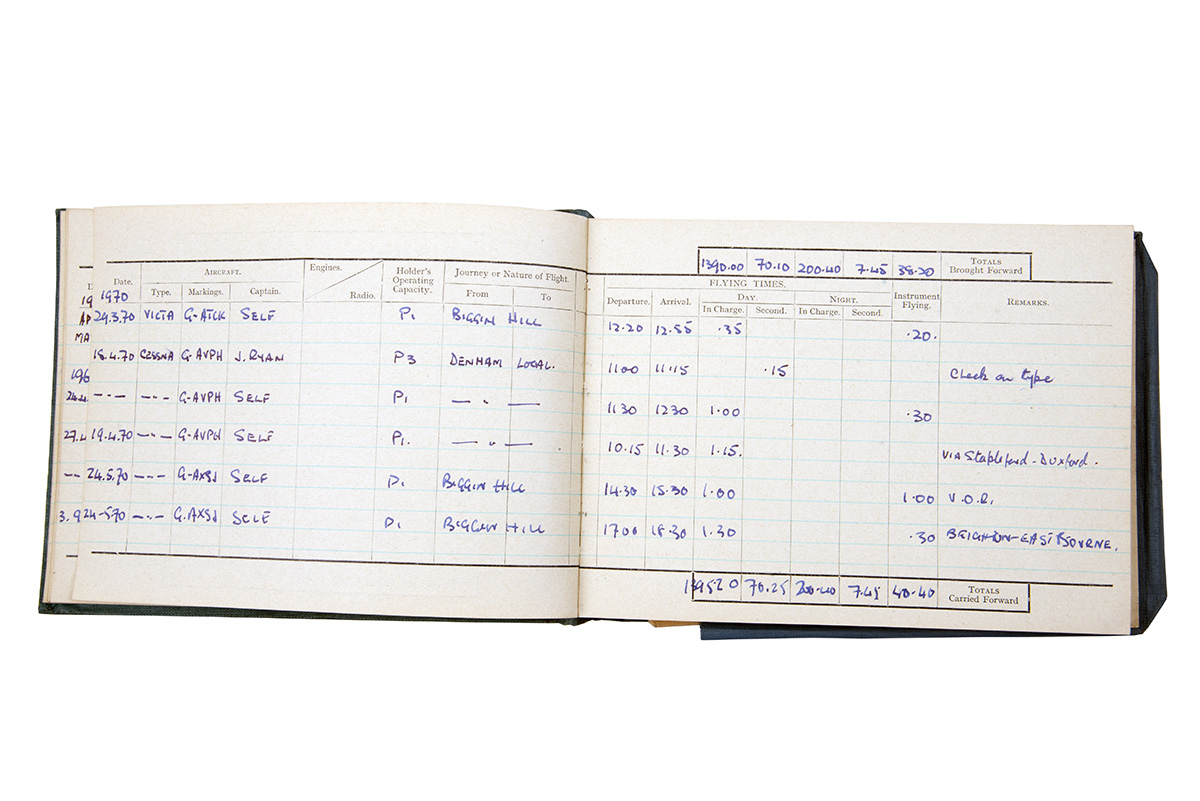 1390.00 70.10 200.40 7.45 38.20 TOTALS Brought Forward
Date. AIRCRAFT. Engines. Radio. Holder's Operating Capacity. Journey or Nature of Flight. FLYING TIMES.
Type. Markings. Captain. From To Departure. Arrival. DAY. NIGHT. Instrument Flying. REMARKS.
In Charge. Second. In Charge. Second.
1970
24.3.70 VICTA G-ATCK SELF P1 BIGGIN HILL 12.20 12.55 .35 .20.
18.4.70 CESSNA G-AVPH J. RYAN P3 DENHAM LOCAL. 1100 11.15 .15 Check on type
—·— —·— G-AVPH SELF P1 — " — 1130 1230 1.00 .30
19.4.70 —"— G-AVPH SELF P1. — " — 10.15 11.30 1.15. VIA Stapleford - DUXford.
24.5.70 —·— G-AXSJ SELF P1 BIGGIN HILL 14.30 15.30 1.00 1.00 V.O.R.
24-5-70 —·— G.AXSJ SELF P1 BIGGIN HILL 1700 18.30 1.30 .30 BRIGHTON-EASTBOURNE.
1395.20 70.25 200.40 7.45 40.40 TOTALS Carried Forward
19
AP
MA
196
24.4.
27.4
--
3.9